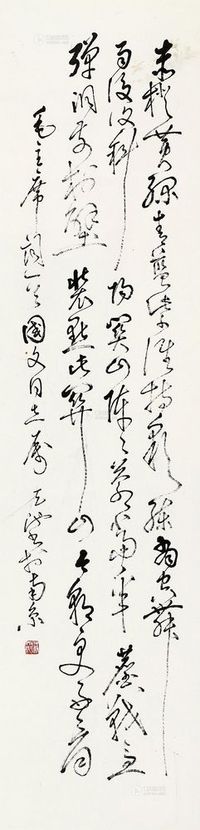 赤橙黄绿青蓝紫谁持彩练当空舞
雨后复斜阳关山阵阵苍当年鏖战急
弹洞前村壁装点此关山今朝更好看
毛主席词一首国文同志属 书于南京